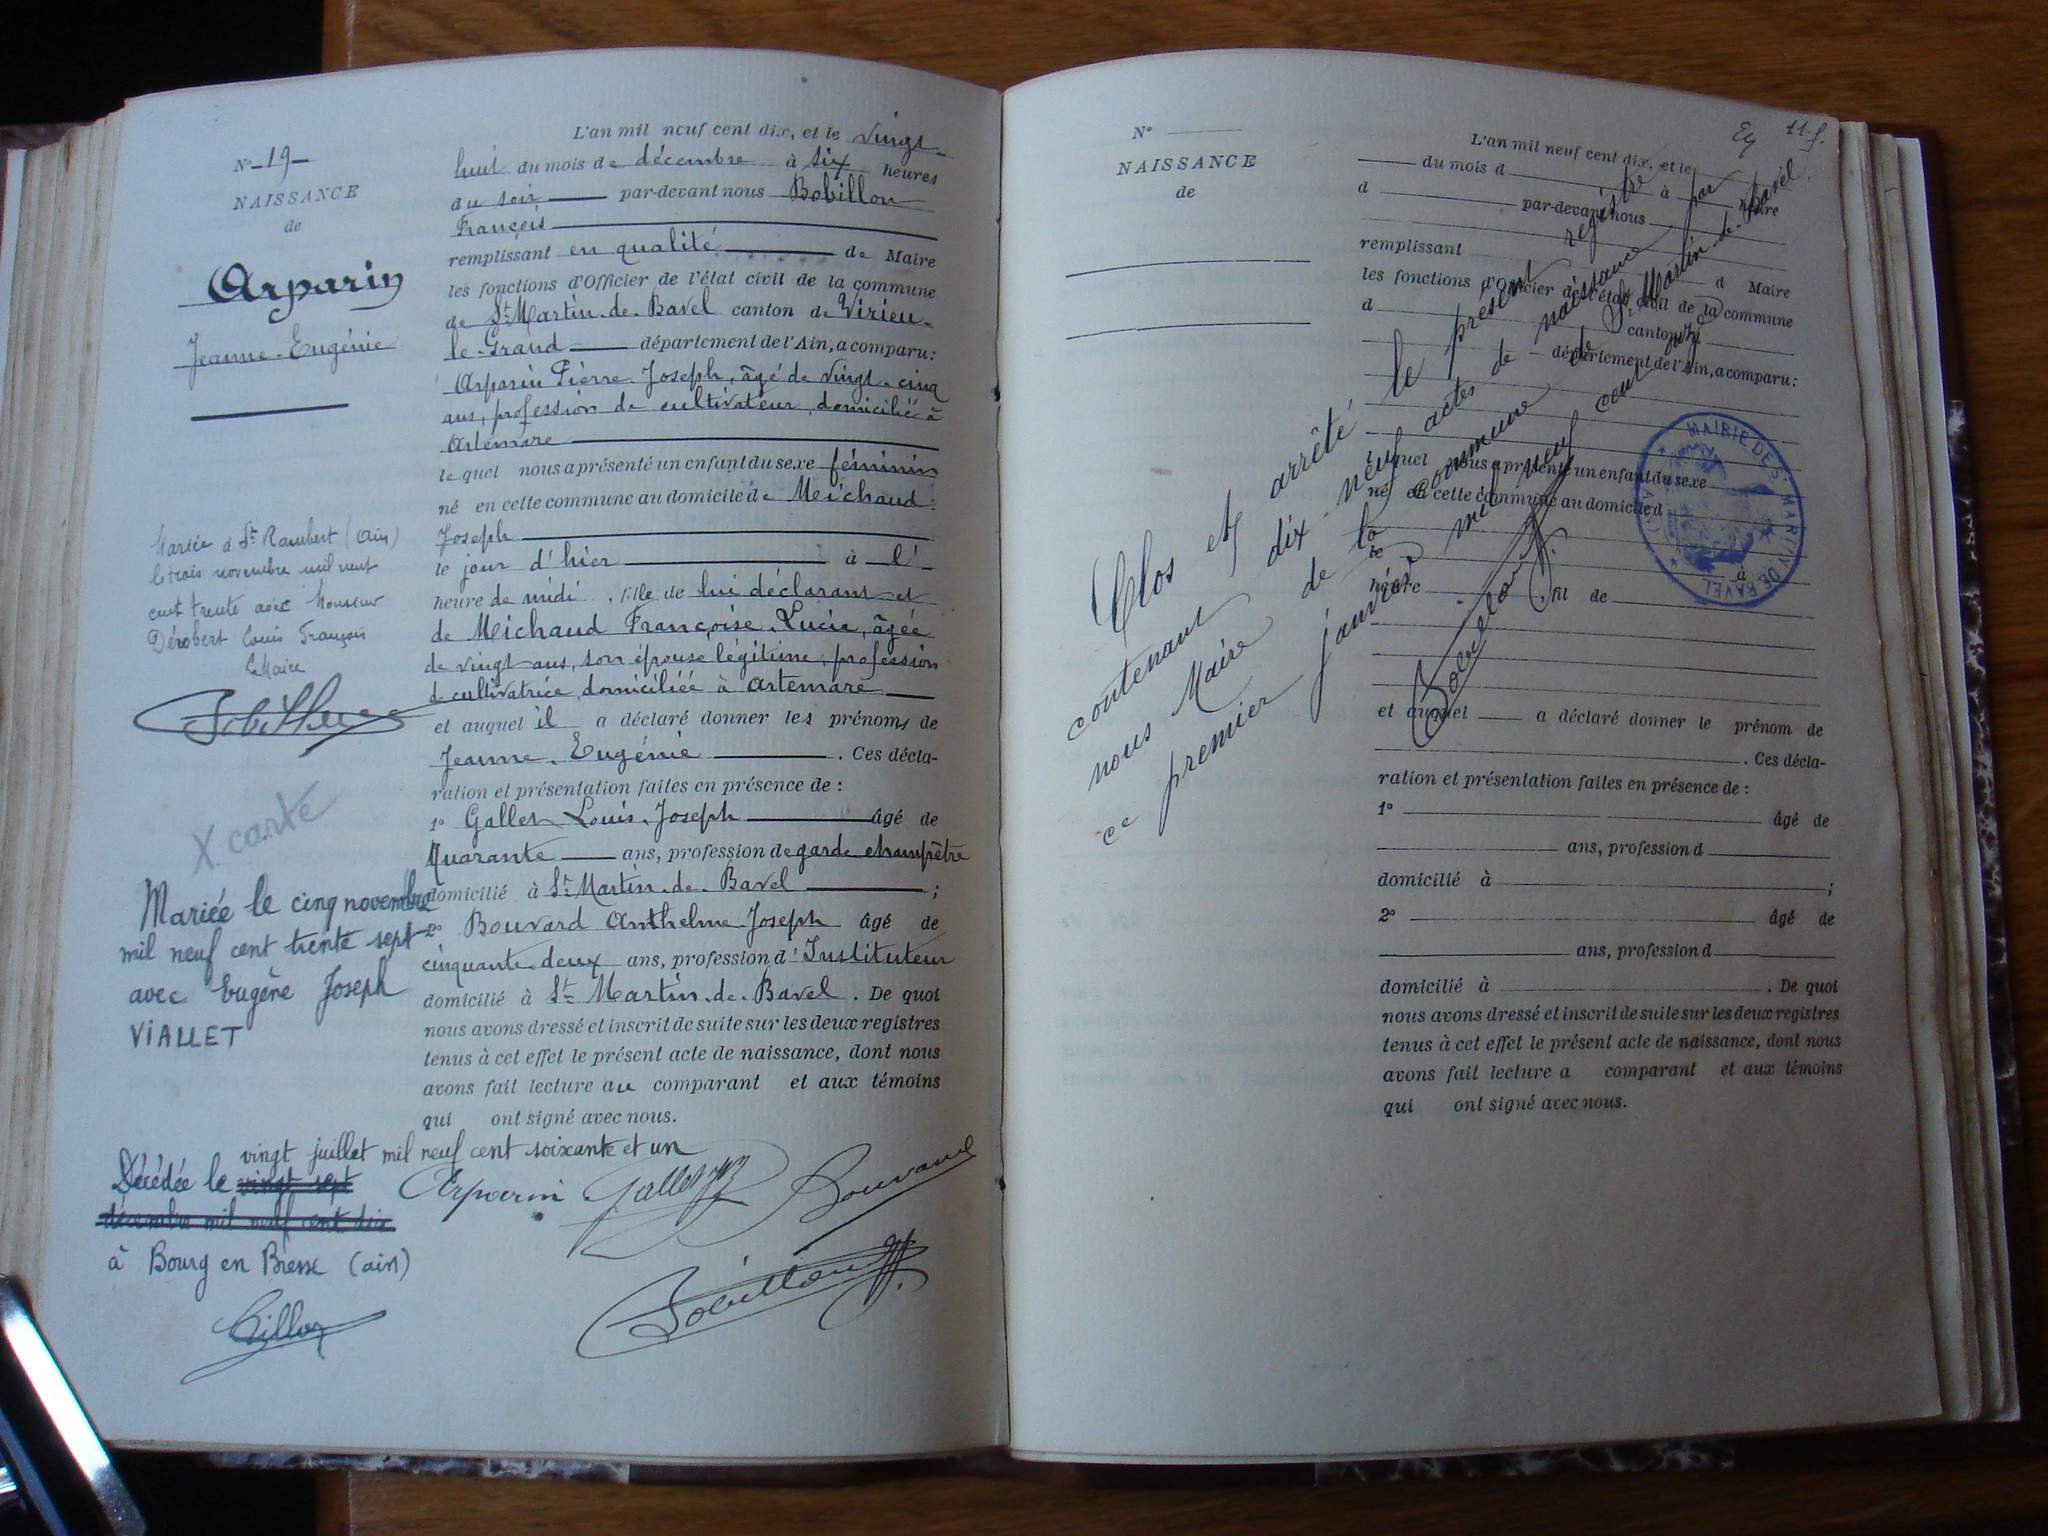 N° 19
NAISSANCE
de
Arparin
Jeanne-Eugénie
L'an mil neuf cent dix, et le vingt-
huit du mois de décembre à six heures
du soir par-devant nous Bobillon
François
remplissant en qualité de Maire
les fonctions d'Officier de l'état civil de la commune
de St Martin-de-Bavel canton de Virieu-
le-Grand département de l'Ain, a comparu:
Arparin Pierre-Joseph, âgé de vingt-cinq
ans, profession de cultivateur, domicilié à
Artemare
lequel nous a présenté un enfant du sexe féminin
né en cette commune au domicile de Michaud
Joseph
le jour d'hier à l'
heure de midi, fille de lui déclarant et
de Michaud Françoise-Lucie, âgée
de vingt ans, son épouse légitime, profession
de cultivatrice, domiciliée à Artemare
et auquel il a déclaré donner les prénoms de
Jeanne-Eugénie. Ces décla-
ration et présentation faites en présence de :
1° Gallet Louis-Joseph âgé de
Quarante ans, profession de garde champêtre
domicilié à St Martin-de-Bavel ;
2° Bouvard Anthelme Joseph âgé de
cinquante-deux ans, profession d'Instituteur
domicilié à St Martin-de-Bavel. De quoi
nous avons dressé et inscrit de suite sur les deux registres
tenus à cet effet le présent acte de naissance, dont nous
avons fait lecture au comparant et aux témoins
qui ont signé avec nous.
Arparin Gallet Bouvard
Bobillon
Mariée à St Rambert (Ain)
le trois novembre mil neuf
cent trente avec Monsieur
Dérobert Louis François
Maire
X carte
Mariée le cinq novembre
mil neuf cent trente sept
avec Eugène Joseph
VIALLET
vingt juillet mil neuf cent soixante et un
Décédée le vingt sept
décembre mil neuf cent dix
à Bourg en Bresse (ain)
N°
NAISSANCE
de
11 f.
L'an mil neuf cent dix, et le
du mois d à heure
d par-devant nous
remplissant
d Maire
les fonctions d'Officier de l'état civil de la commune
d canton d
département de l'Ain, a comparu:
lequel nous a présenté un enfant du sexe
né en cette commune au domicile d
à
heure fil de
et auquel a déclaré donner le prénom de
. Ces décla-
ration et présentation faites en présence de :
1° âgé de
ans, profession d
domicilié à ;
2° âgé de
ans, profession d
domicilié à . De quoi
nous avons dressé et inscrit de suite sur les deux registres
tenus à cet effet le présent acte de naissance, dont nous
avons fait lecture a comparant et aux témoins
qui ont signé avec nous.
Clos et arrêté le présent registre
contenant dix-neuf actes de naissance par
nous Maire de la commune de St Martin-de-Bavel.
ce premier janvier mil neuf cent onze
Bobillon
MAIRIE DE ST MARTIN DE BAVEL
(AIN)